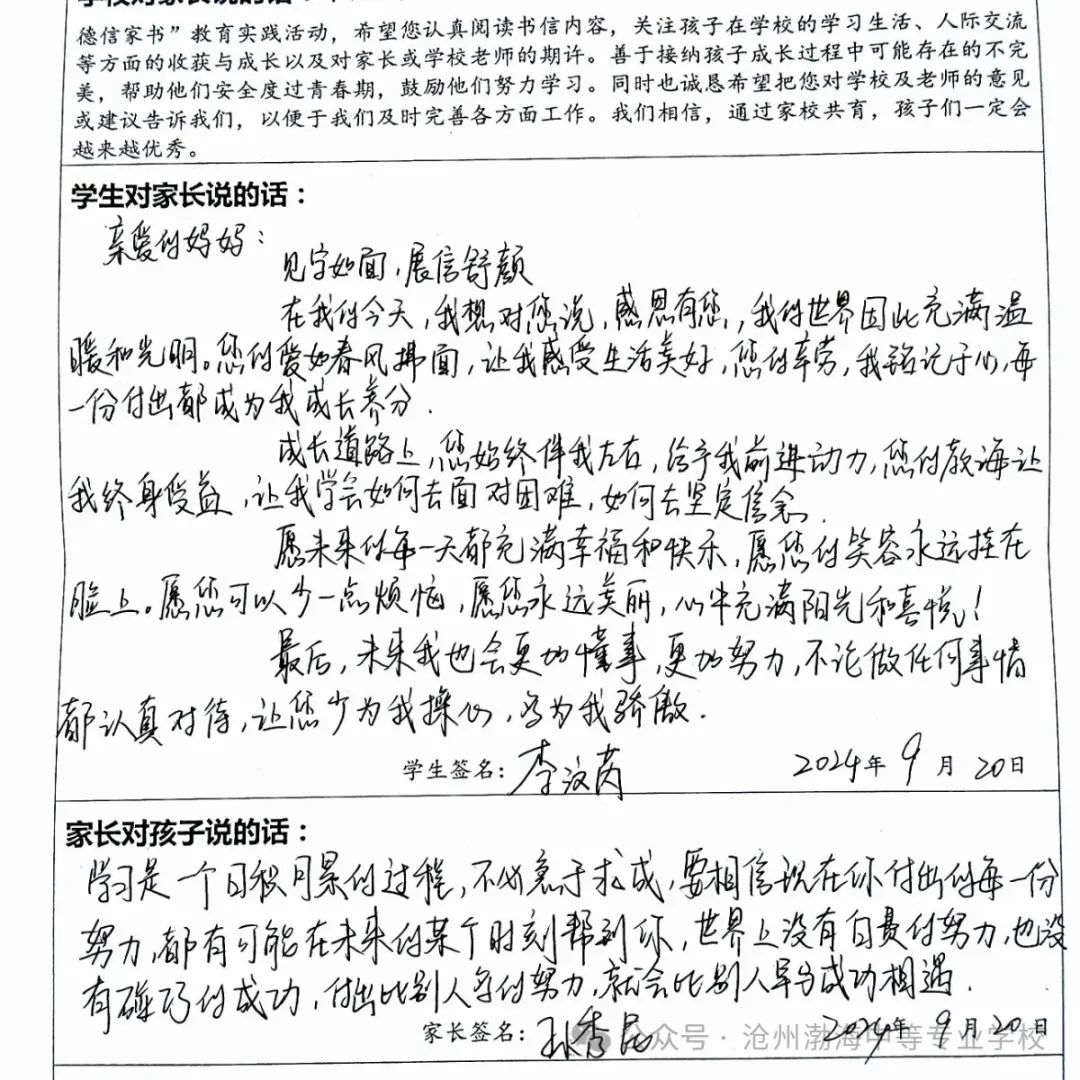 德信家书”教育实践活动，希望您认真阅读书信内容，关注孩子在学校的学习生活、人际交流
等方面的收获与成长以及对家长或学校老师的期许。善于接纳孩子成长过程中可能存在的不完
美，帮助他们安全度过青春期，鼓励他们努力学习。同时也诚恳希望把您对学校及老师的意见
或建议告诉我们，以便于我们及时完善各方面工作。我们相信，通过家校共育，孩子们一定会
越来越优秀。
学生对家长说的话：
亲爱的妈妈：
见字如面，展信舒颜
在我的今天，我想对您说，感恩有您，我的世界因此充满温
暖和光明。您的爱如春风拂面，让我感受生活美好，您的辛劳，我铭记于心，每
一份付出都成为我成长养分.
成长道路上，您始终伴我左右，给予我前进动力，您的教诲让
我终身受益，让我学会如何去面对困难，如何去坚定信念.
愿未来的每一天都充满幸福和快乐，愿您的笑容永远挂在
脸上。愿您可以少一点烦恼，愿您永远美丽，心中充满阳光和喜悦！
最后，未来我也会更加懂事，更加努力，不论做任何事情
都认真对待，让您少为我操心，多为我骄傲.
学生签名：李汶芮 2024年 9 月 20日
家长对孩子说的话：
学习是一个日积月累的过程，不必急于求成，要相信现在你付出的每一份
努力，都有可能在未来的某个时刻帮到你，世界上没有白费的努力，也没
有碰巧的成功，付出比别人多的努力，就会比别人早与成功相遇.
家长签名：孙秀 2024年 9 月 20日
公众号 · 沧州渤海中等专业学校